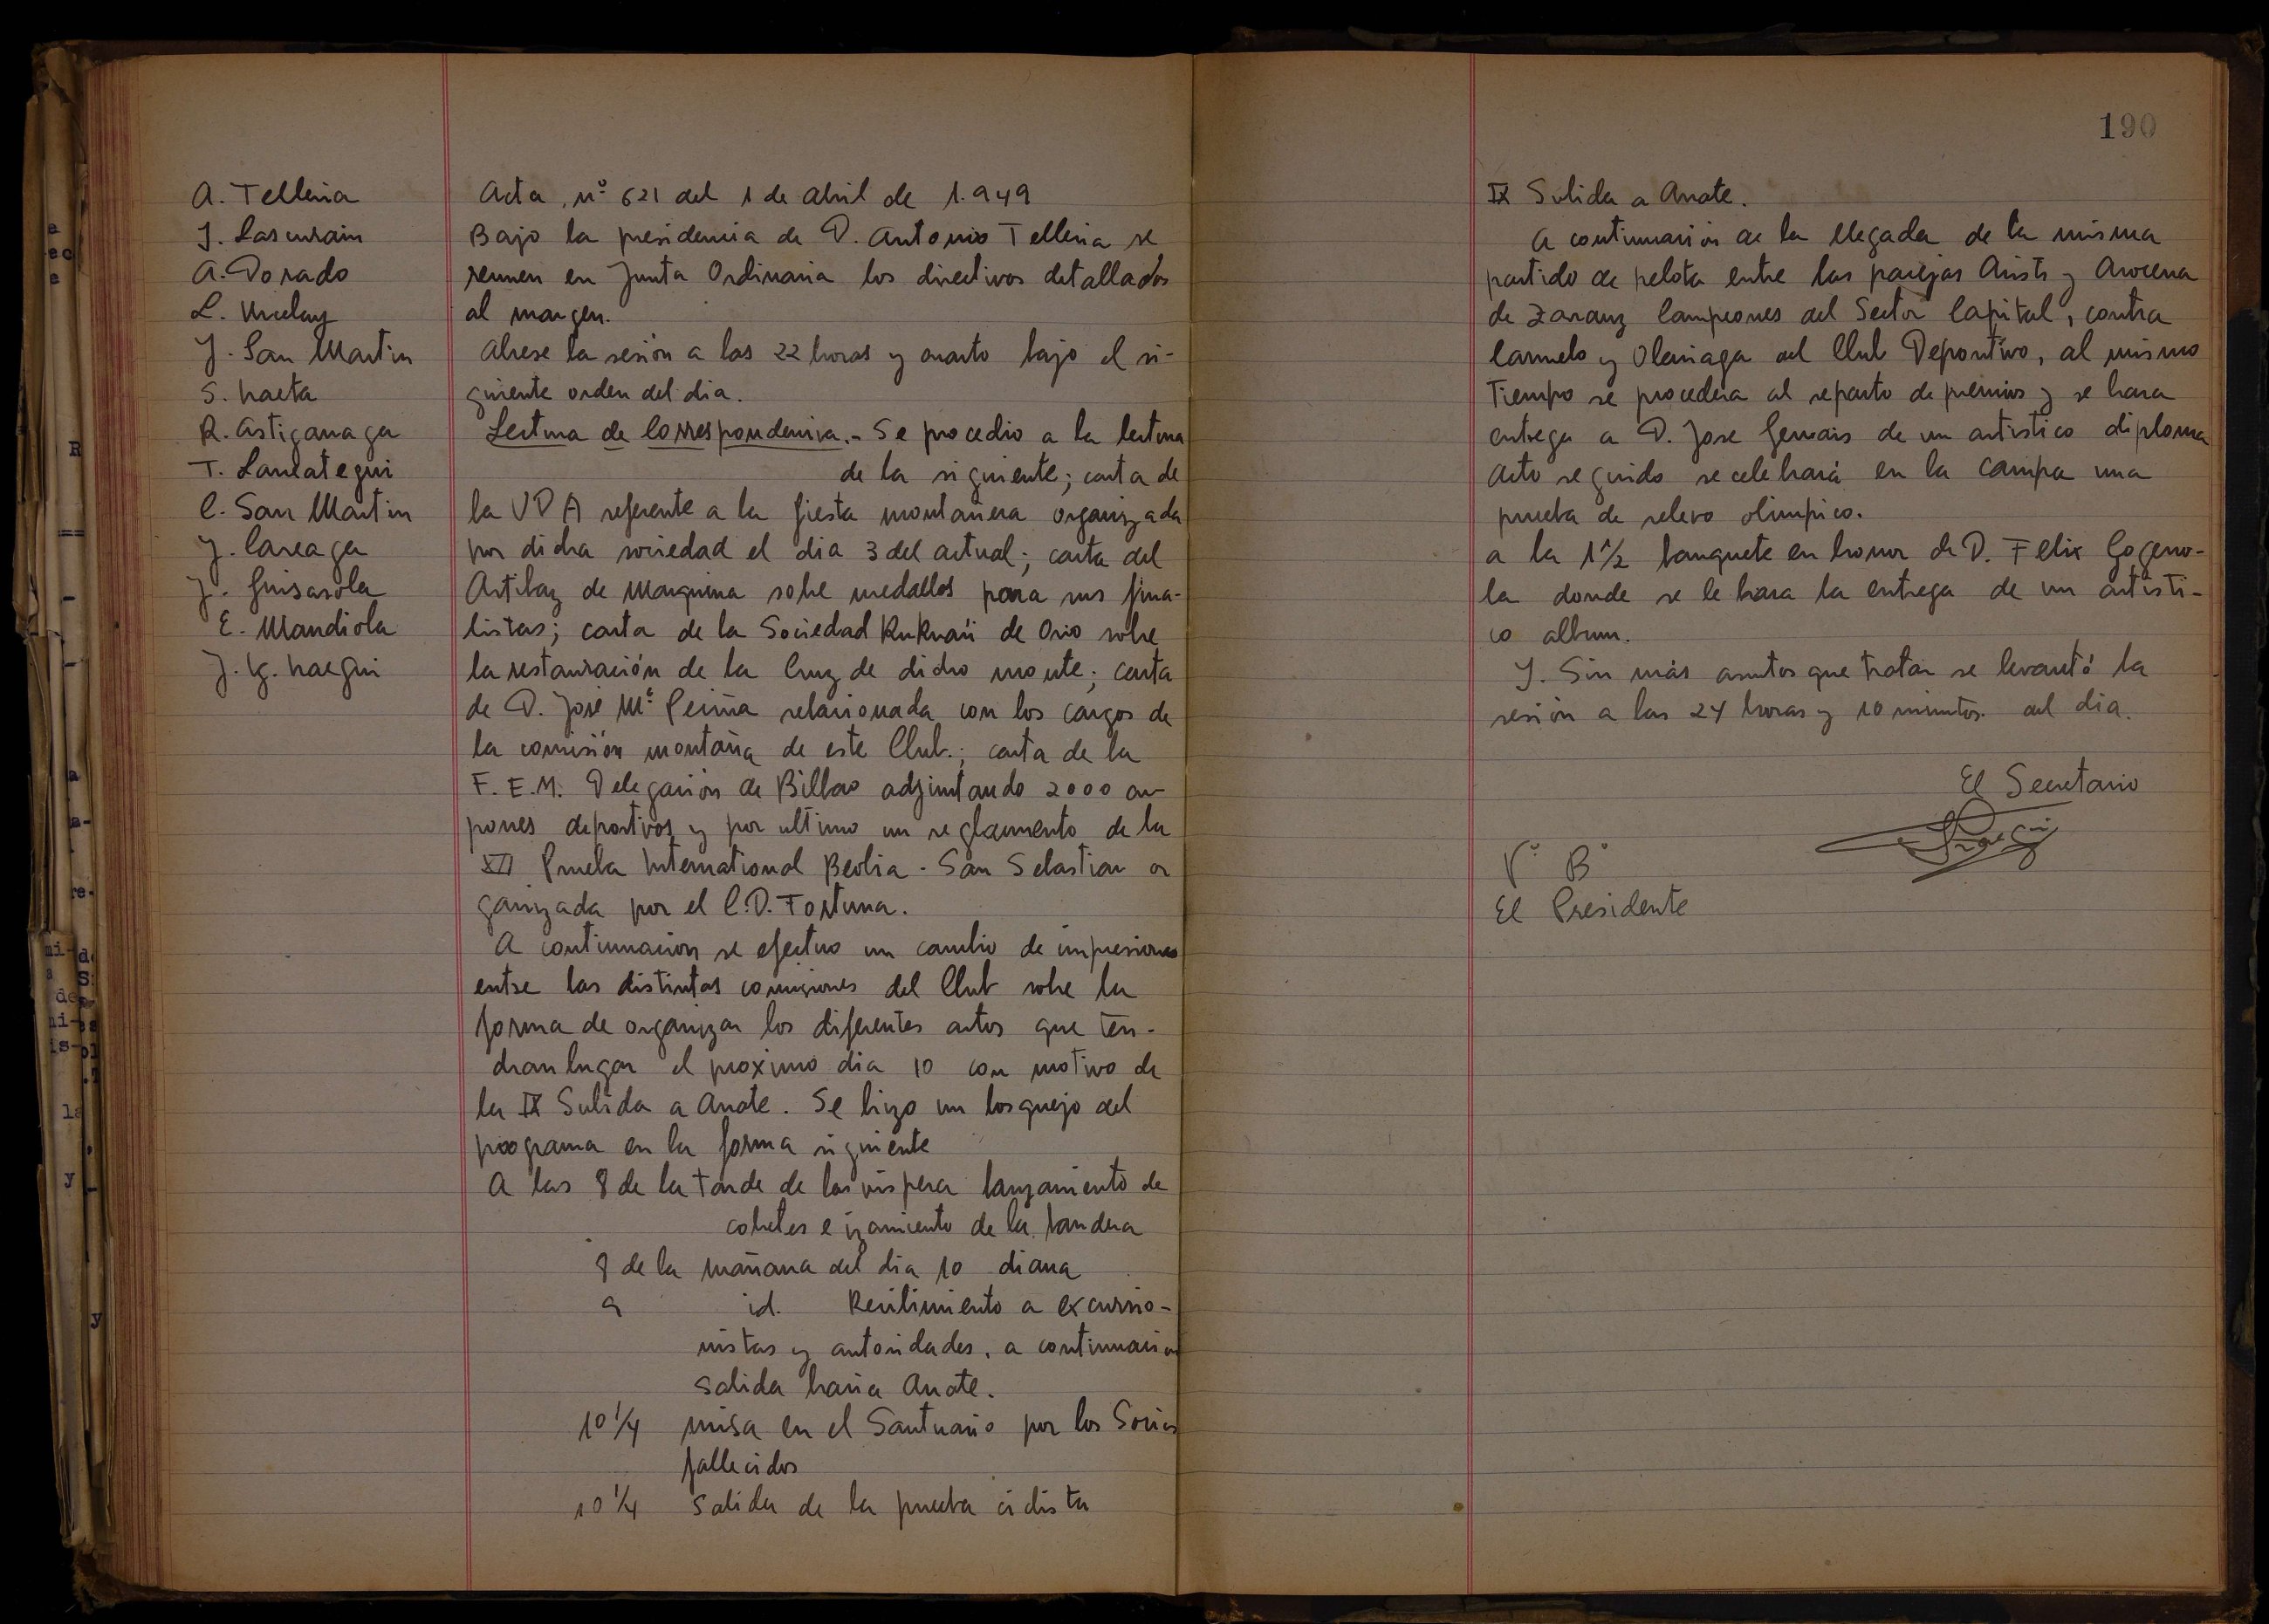 A. Telleria
J. Lascurain
A. Dorado
L. Urcelay
J. San Martin
S. Iraeta
R. Astigarraga
T. Laucategui
C. San Martin
J. Careaga
J. Guisasola
E. Mandiola
J. Ig. Iraegui
Acta, nº 621 del 1 de abril de 1.949
Bajo la presidencia de D. Antonio Telleria se
reunen en Junta Ordinaria los directivos detallados
al margen.
Abrese la sesión a las 22 horas y cuarto bajo el si-
guiente orden del dia.
Lectura de Correspondencia.- Se procedio a la lectura
de la siguiente; carta de
la UDA referente a la fiesta montañera organizada
por dicha sociedad el dia 3 del actual; carta del
Artibay de Marquina sobre medallas para sus fina-
listas; carta de la Sociedad Kukuarri de Orio sobre
la restauración de la Cruz de dicho monte; carta
de D. José Mª Peciña relacionada con los cargos de
la comisión montaña de este Club.; carta de la
F. E.M. Delegación de Bilbao adjuntando 2000 cu-
pones deportivos y por ultimo un reglamento de la
XII Prueba International Beobia - San Sebastian or
ganizada por el C.D. Fortuna.
A continuacion se efectuo un cambio de impresiones
entre las distintas comisiones del Club sobre la
forma de organizar los diferentes actos que ten-
dran lugar el proximo dia 10 con motivo de
la IX Subida a Arrate. Se hizo un bosquejo del
programa en la forma siguiente
A las 8 de la tarde de las vispera lanzamiento de
cohetes e izamiento de la bandera
8 de la mañana del dia 10 diana
9 id. Recibimiento a excursio-
nistas y autoridades, a continuacion
salida hacia Arrate.
10 1/4 misa en el Santuario por los Socios
fallecidos
10 1/4 Salida de la prueba ciclista
190
IX Subida a Arrate.
A continuacion de la llegada de la misma
partido de pelota entre las parejas Aristi y Arocena
de Zarauz Campeones del Sector Capital, contra
Carmelo y Olairiaga del Club Deportivo, al mismo
Tiempo se procedera al reparto de premios y se hara
entrega a D. Jose Gervais de un artistico diploma
Acto seguido se celebrará en la campa una
prueba de relevo olimpico.
a la 1 1/2 banquete en honor de D. Felix Gogeno-
la donde se le hara la entrega de un artisti-
co album.
Y. Sin más asuntos que tratar se levantó la
sesión a las 24 horas y 10 minutos. del dia.
El Secretario
Vº Bº
El Presidente